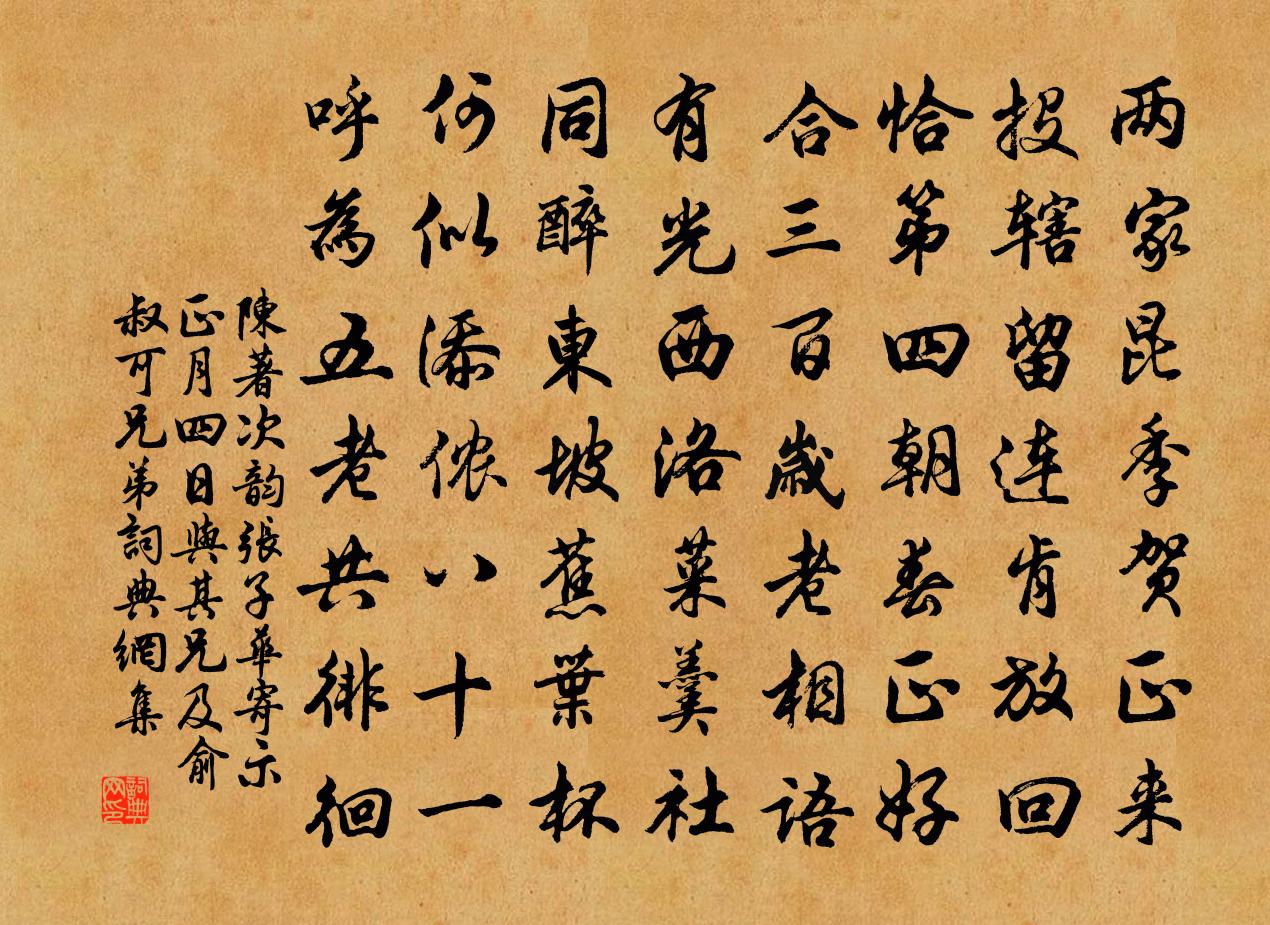 两家昆季贺正来
投辖留连肯放回
恰第四朝春正好
合三百歲老相语
有光西洛菜羹社
同醉東坡蕉葉杯
何似添侬八十一
呼為五老共徘徊
陳著次韵張子華寄示
正月四日與其兄及俞
叔可兄弟詞典網集
詞典
网印